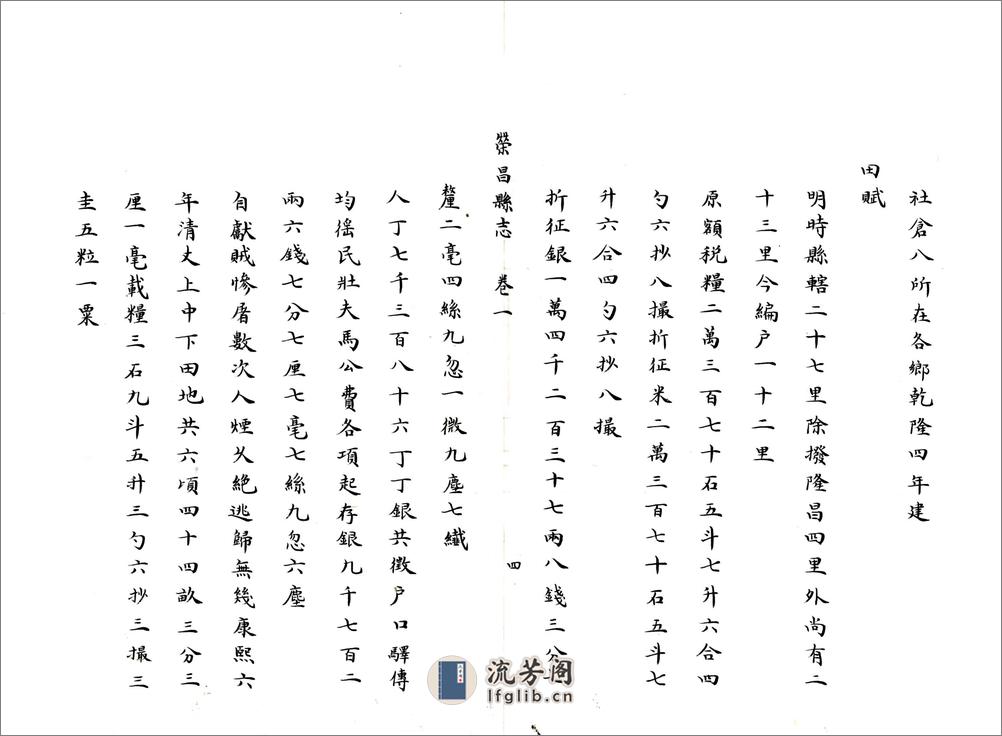 社倉八所在各鄉乾隆四年建
田賦
明時縣轄二十七里除撥隆昌四里外尚有二
十三里今編户一十二里
原額税糧二萬三百七十石五斗七升六合四
勺六抄八撮折征米二萬三百七十石五斗七
升六合四勺六抄八撮
折征銀一萬四千二百三十七兩八錢三分
榮昌縣志 卷一
四
釐二毫四絲九忽一微九塵七纖
人丁七千三百八十六丁丁銀共徵户口驛傳
均徭民壯夫馬公費各項起存銀九千七百二
兩六錢七分七厘七毫七絲九忽六塵
自獻賊慘屠數次人煙乆絶逃歸無幾康熙六
年清丈上中下田地共六頃四十四畝三分三
厘一毫載糧三石九斗五升三勺六抄三撮三
圭五粒一粟
流芳阁
lfglib.cn